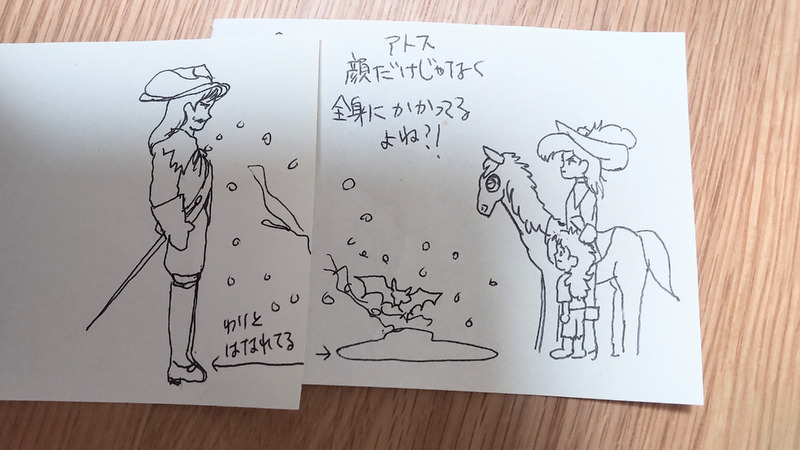 アトス
顔だけじゃなく
全身にかかってる
よね?!
わりと
はなれてる